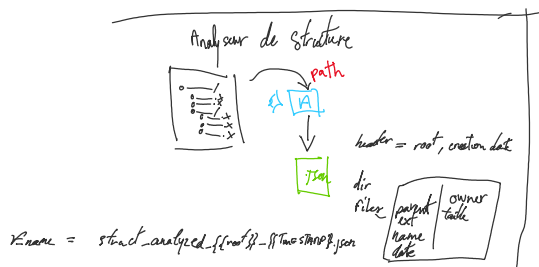 Analyseur de structure
path
A
.json
header = root, creation date
dir
files
parent
ext
name
date
owner
taille
r_name = struct_analyzed_{{root}}_{{TimeSTAMP}}.json